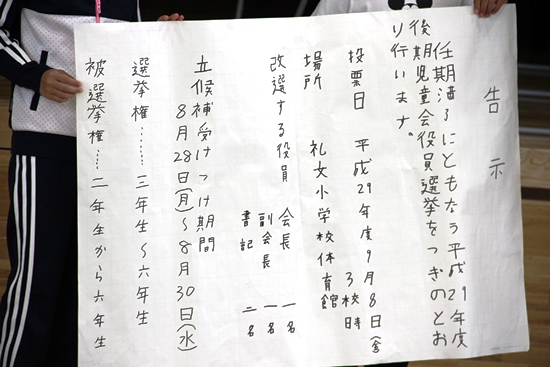 告示
任期満了にともなう平成29年度
後期児童会役員選挙をつぎのとお
り行います。
投票日 平成29年度9月8日(金)
3校時
場所 礼文小学校体育館
改選する役員 会長 一名
副会長 一名
書記 二名
立候補受けつけ期間
8月28日(月)~8月30日(水)
選挙権……三年生~六年生
被選挙権……二年生から六年生